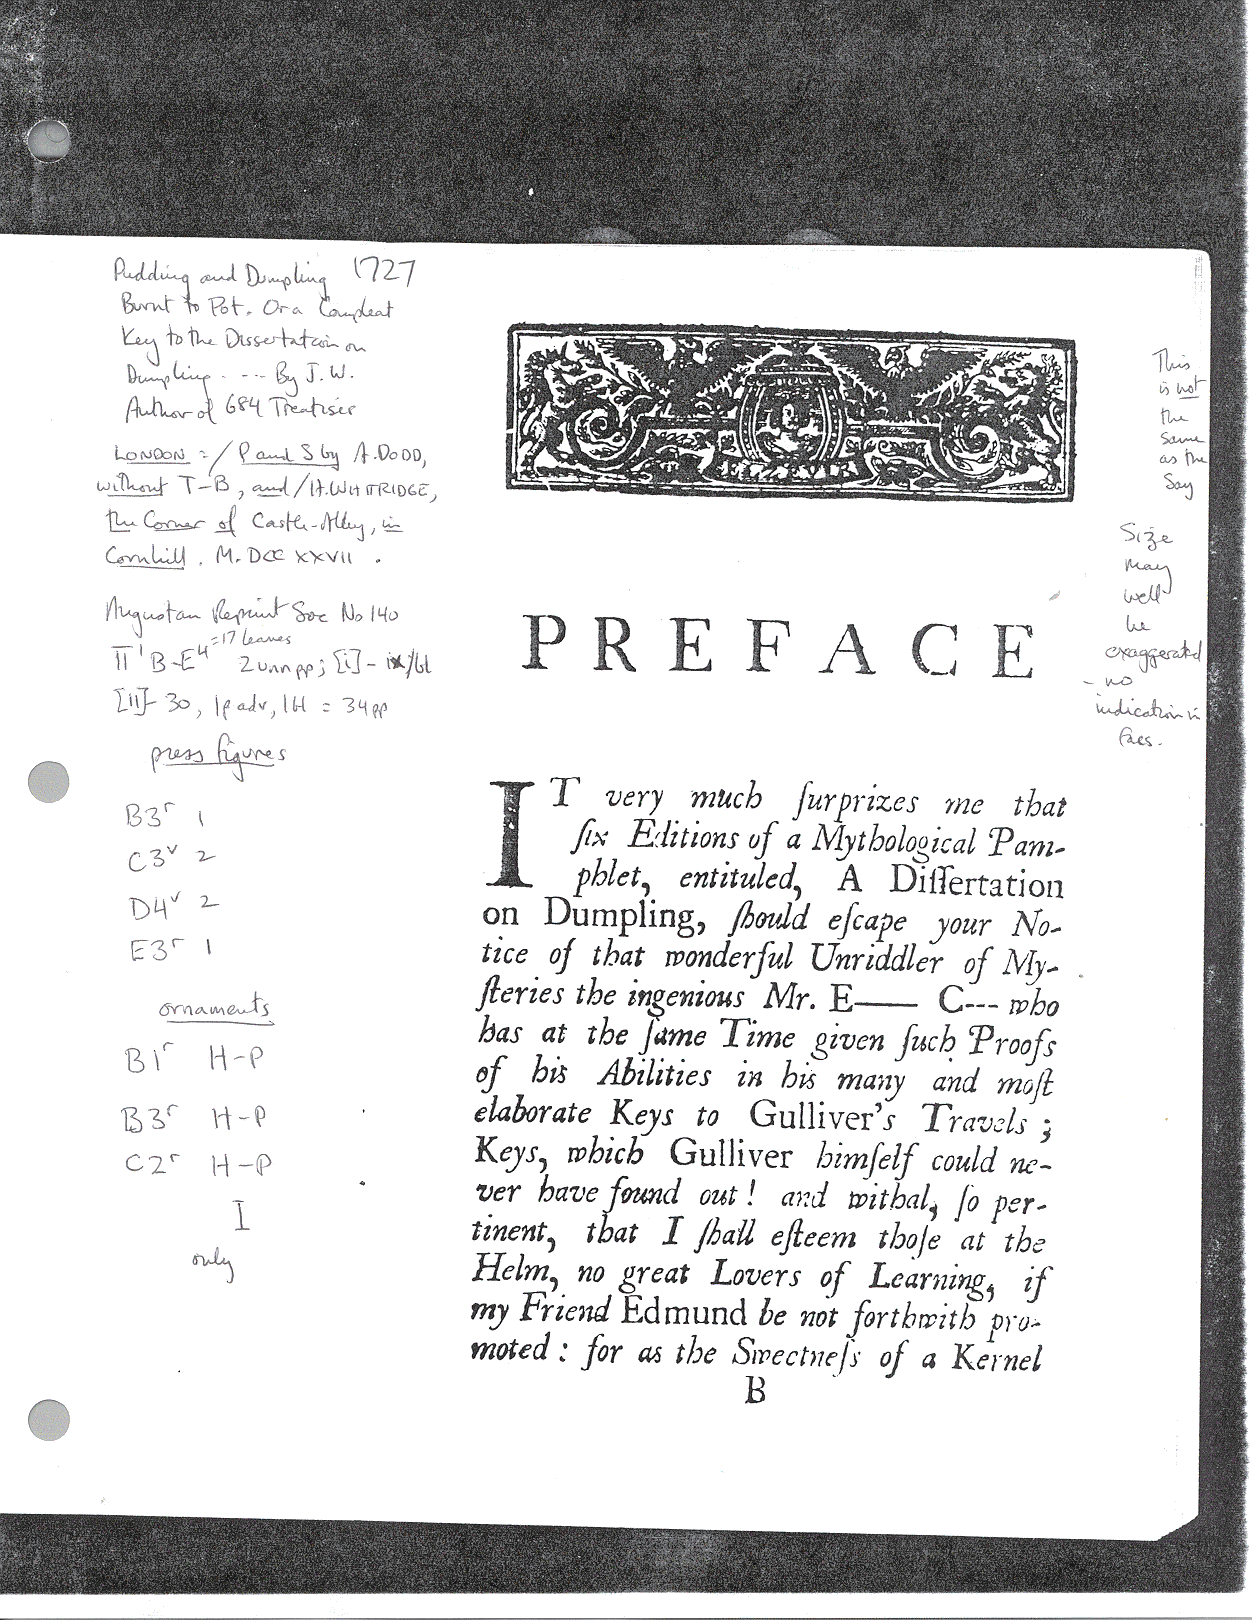 Pudding and Dumpling 1727
Burnt to Pot. Or a Compleat
Key to the Dissertation on
Dumpling. --- By J. W.
Author of 684 Treatises
LONDON : / P and S by A. DODD,
without T-B, and / H. WHITRIDGE,
the Corner of Castle-Alley, in
Cornhill. M. DCC XXVII.
Augustan Reprint Soc No 140
=17 leaves
π¹ B-E⁴ 2 unn pp; [i]- ix/bl
[11]- 30, 1p adv, 1bl = 34pp
press figures
B3ʳ 1
C3ᵛ 2
D4ᵛ 2
E3ʳ 1
ornaments
B1ʳ H-P
B3ʳ H-P
C2ʳ H-P
I
only
PREFACE
IT very much ſurprizes me that
ſix Editions of a Mythological Pam-
phlet, entituled, A Diſſertation
on Dumpling, ſhould eſcape your No-
tice of that wonderful Unriddler of My-
ſteries the ingenious Mr. E—— C--- who
has at the ſame Time given ſuch Proofs
of his Abilities in his many and moſt
elaborate Keys to Gulliver's Travels ;
Keys, which Gulliver himſelf could ne-
ver have found out ! and withal, ſo per-
tinent, that I ſhall eſteem thoſe at the
Helm, no great Lovers of Learning, if
my Friend Edmund be not forthwith pro-
moted : for as the Sweetneſs of a Kernel
B
This
is not
the
same
as the
Say
Size
may
well
be
exaggerated
- no
indication in
facs.